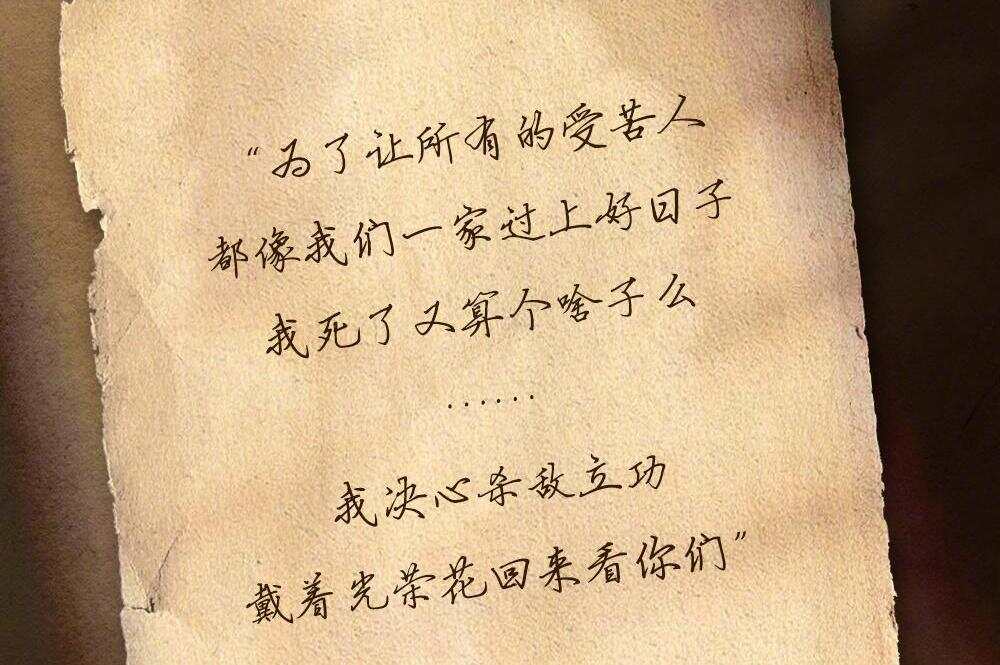 “为了让所有的受苦人
都像我们一家过上好日子
我死了又算个啥子么
······
我决心杀敌立功
戴着光荣花回来看你们”